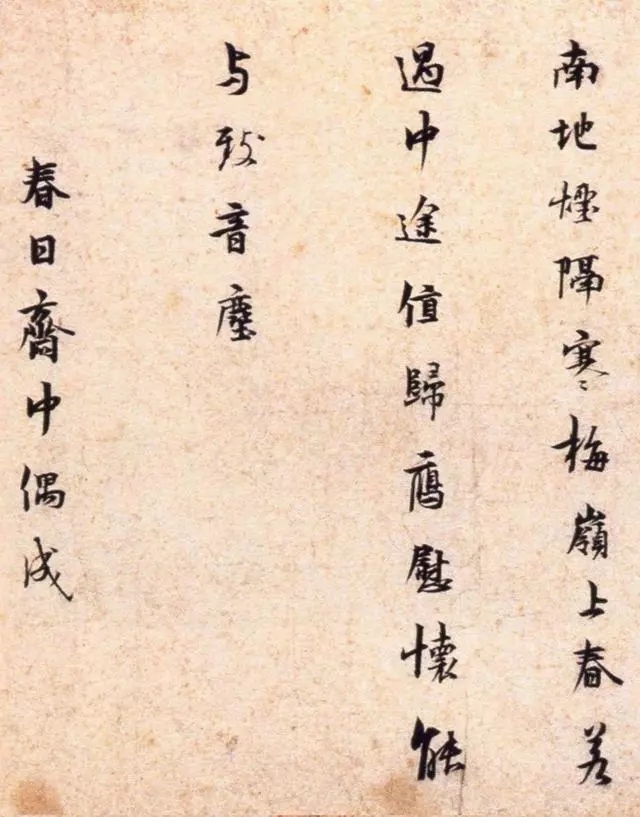 南地煙隔寒梅嶺上春若
過中途值歸鴈慰懷能
与致音塵
春日齋中偶成